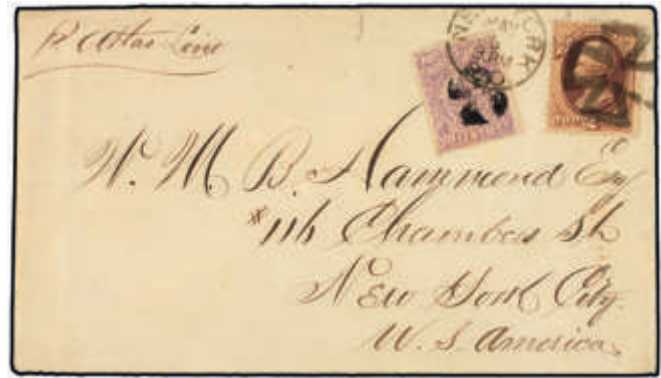 Pr Atlas Line
NEW YORK
MAY
W. M. B. Hammond Esq
116 Chambers St
New York City.
U. S. America